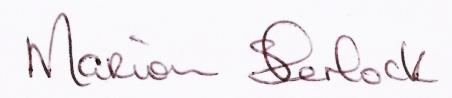 Marion Sherlock